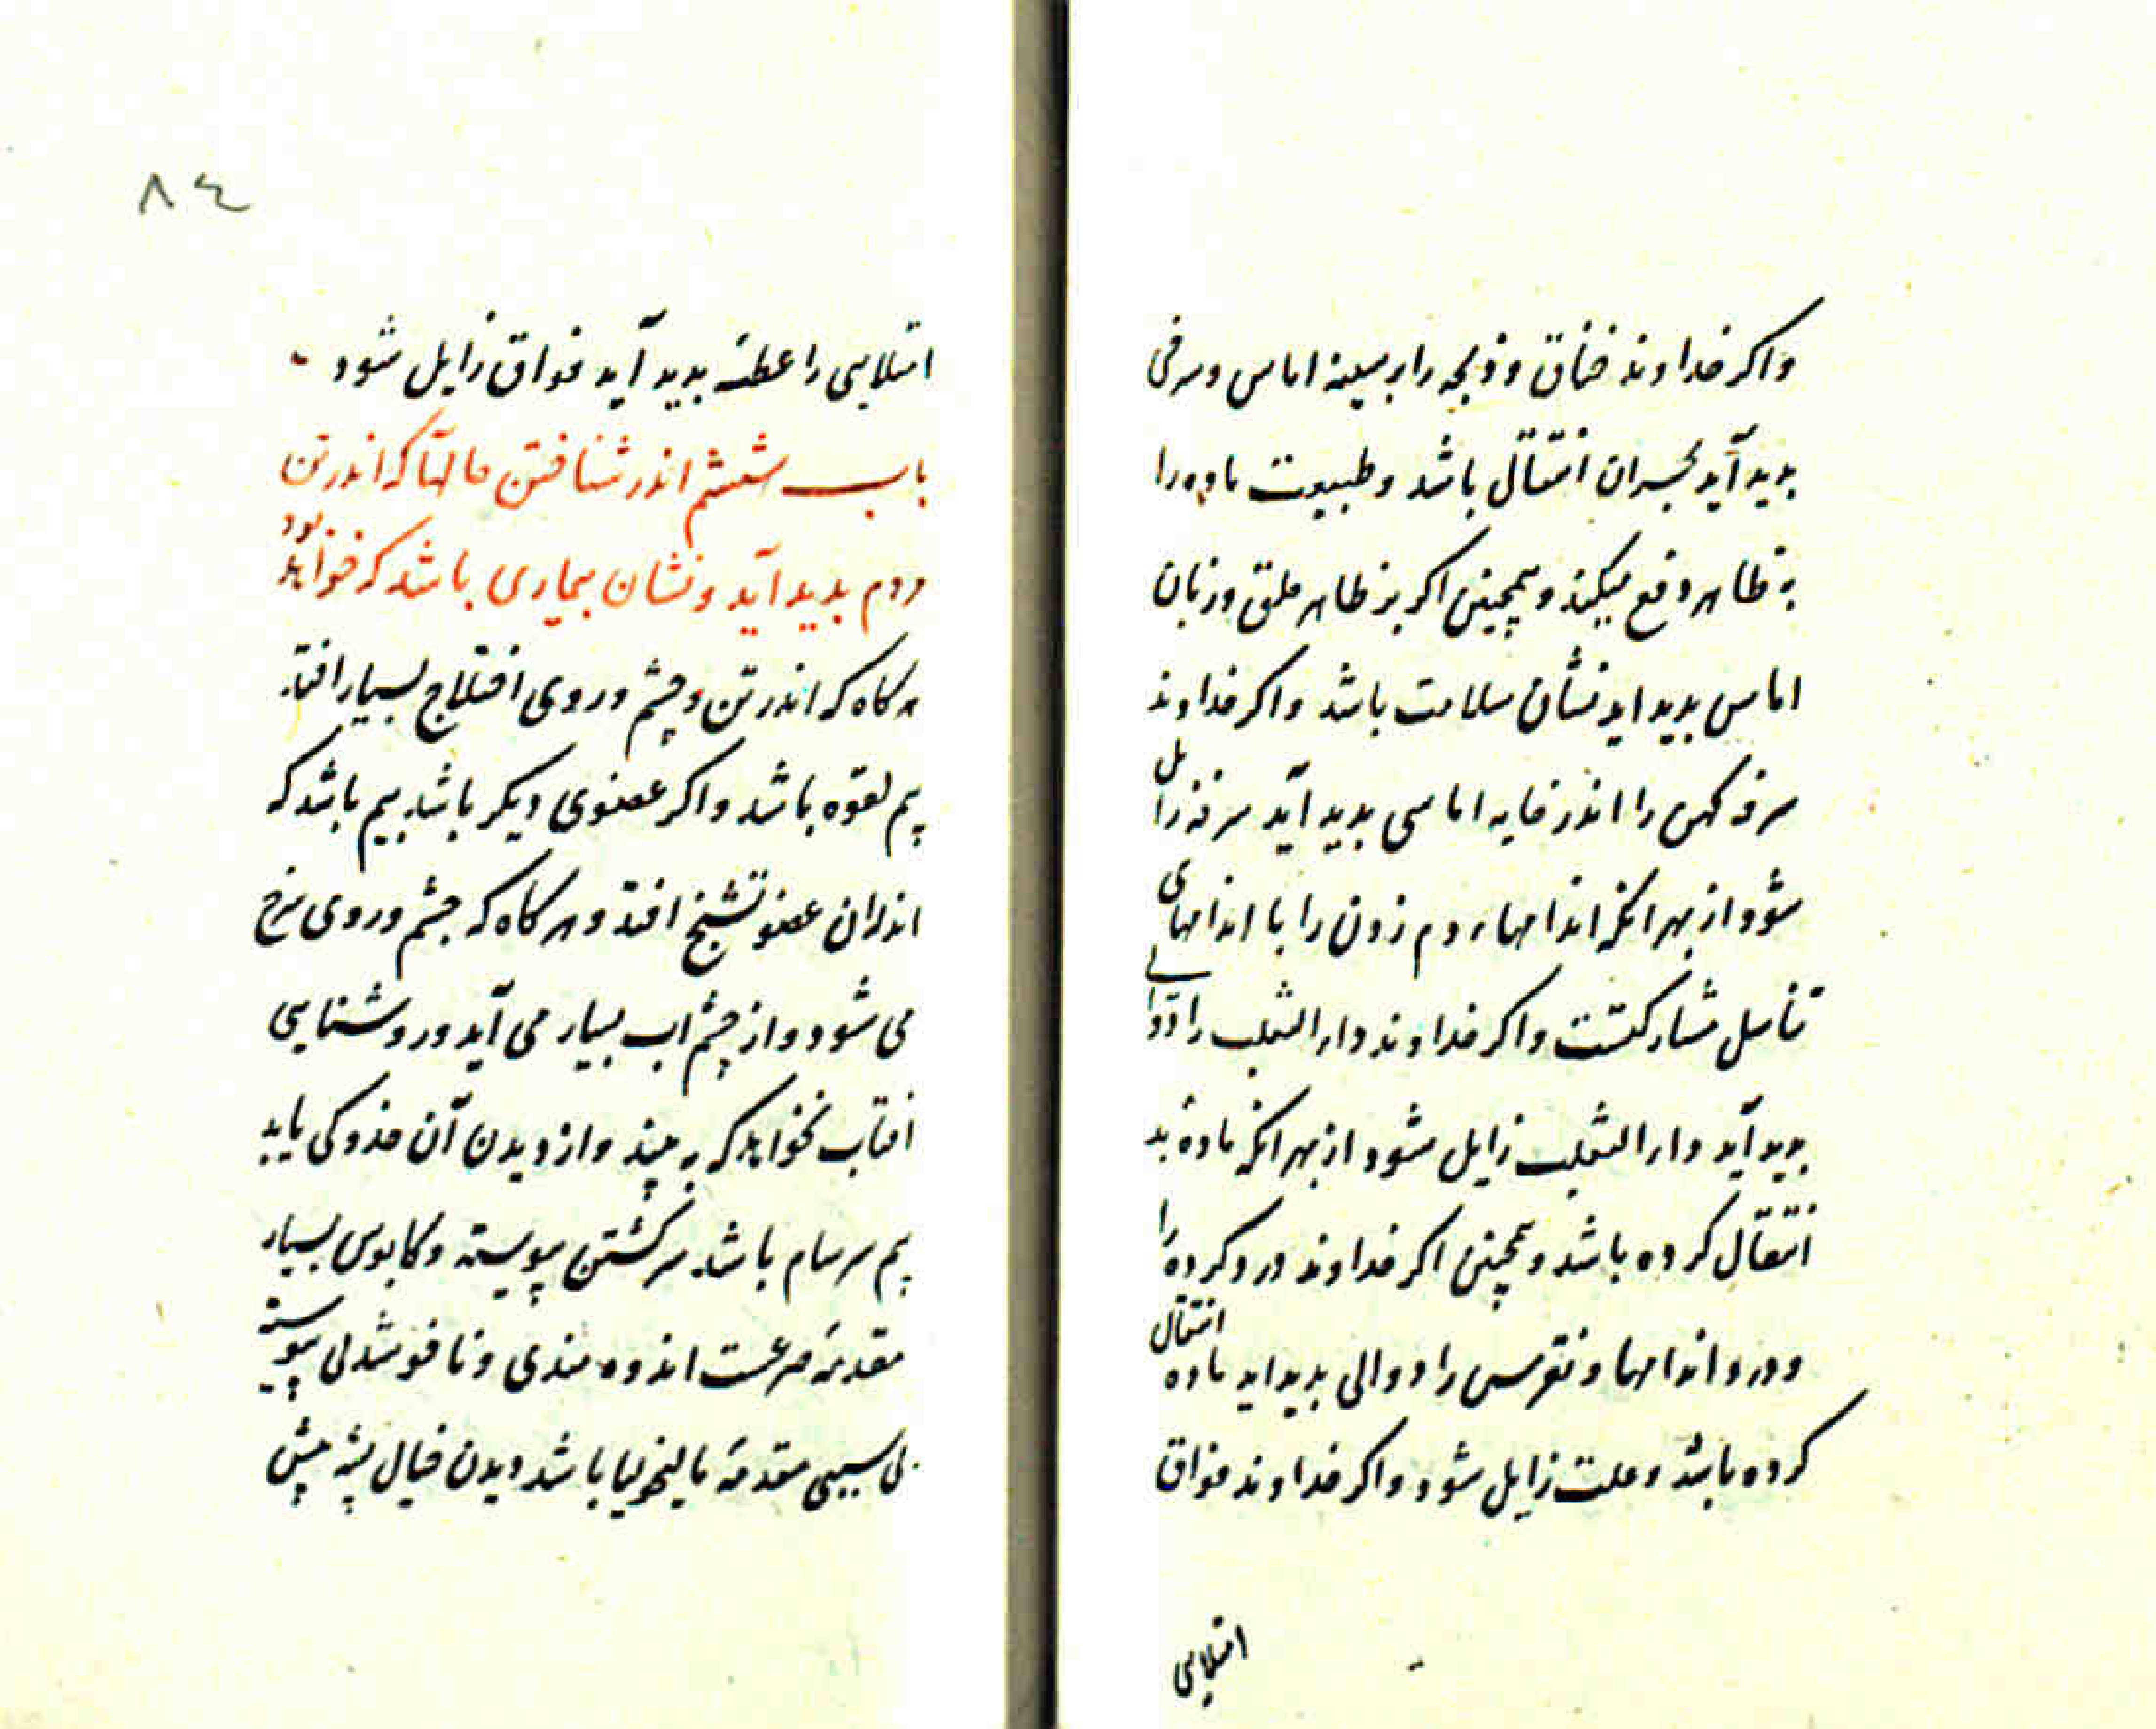 واکر خداوند خناق و ذبحه را بر سینه اماس و سرخی
بدید آید بحران انتقال باشد و طبیعت ماده را
به ظاهر دفع میکند و همچنین اکر بر ظاهر حلق و زبان
اماس بدید اید نشان سلامت باشد و اکر خداوند
سرفه کهن را اندر خایه اماسی بدید آید سرفه زایل
شود از بهر انکه اندامهاء دم زدن را با اندامهای
تناسل مشارکتست و اکر خداوند داء الثعلب را دوالی
بدید آید داء الثعلب زایل شود از بهر انکه ماده بد
انتقال کرده باشد و همچنین اکر خداوند درد کرده را
و درد اندامها و نقرس را دوالی بدید اید ماده انتقال
کرده باشد و علت زایل شود و اکر خداوند فواق
امتلایی
۸٤
امتلایی را عطسه بدید آید فواق زایل شود
باب ششم اندر شناختن حالتها که اندر تن
مردم بدید آید و نشان بیماری باشد که خواهد بود
هر کاه که اندر تن و چشم و روی اختلاج بسیار افتد
بیم لقوه باشد و اکر عضوی دیکر باشد بیم باشد که
اندران عضو تشنج افتد و هر کاه که چشم و روی سرخ
می شود و از چشم اب بسیار می آید و روشنایی
افتاب نخواهد که به بیند و از دیدن آن خذوکی یابد
بیم سرسام باشد سرکشتن پیوسته و کابوس بسیار
مقدمه صرعست اندوه مندی و ناخوشدلی پیوسته
بی سببی مقدمه مالیخولیا باشد دیدن خیال پشه پیش